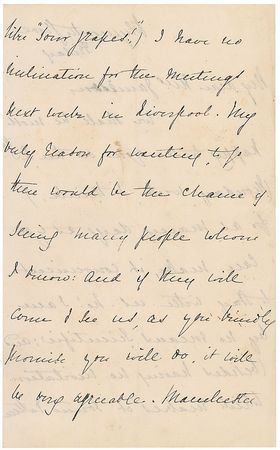 like "sour grapes!") I have no
inclination for the meetings
next week in Liverpool. My
only reason for wanting to go
there would be the chance of
seeing many people whom
I know: and if they will
come & see us, as you kindly
promise you will do, it will
be very agreeable. Manchester